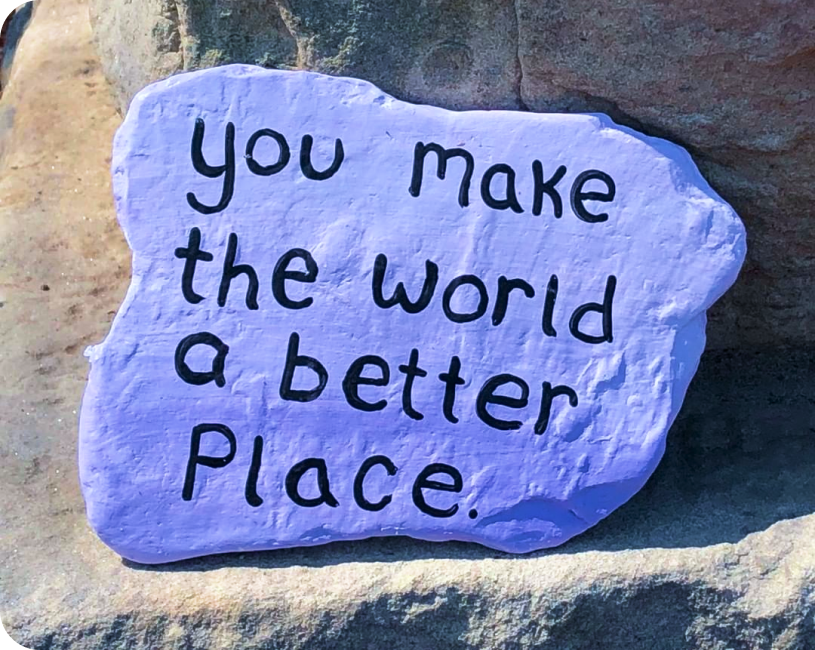 you make
the world
a better
Place.